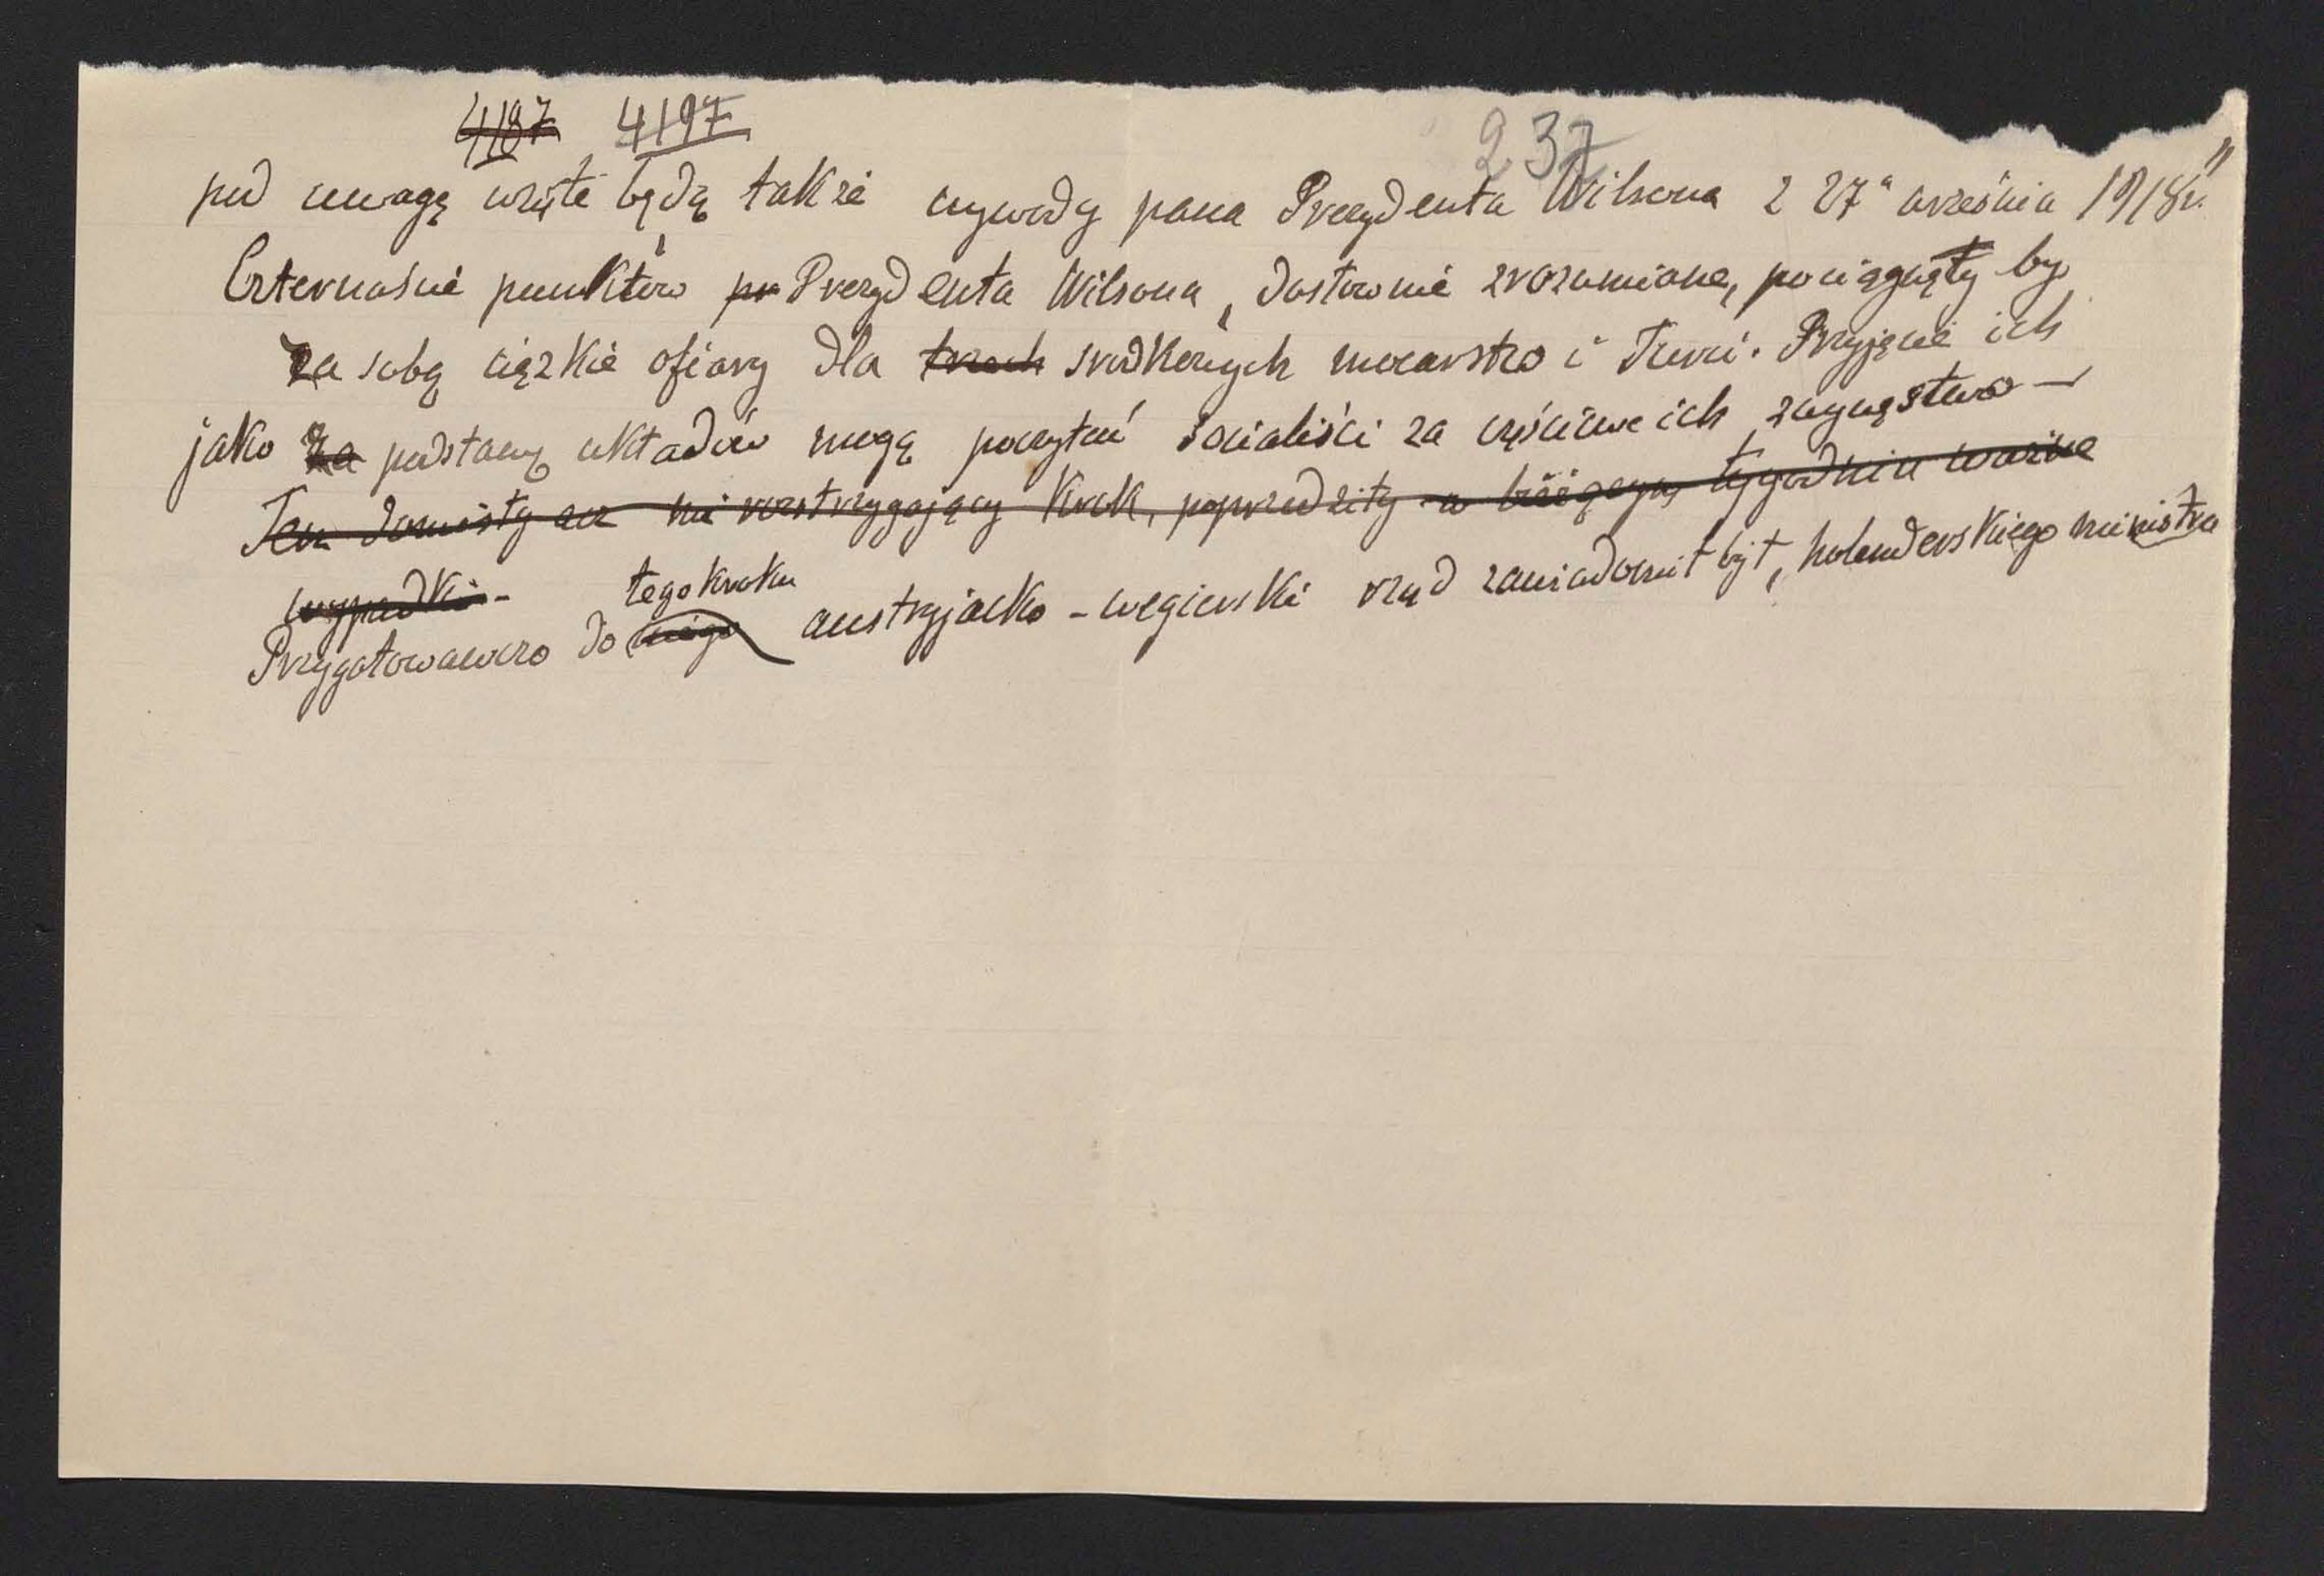 4187 4197 237
pod uwagę wzięte będą także wywody pana Prezydenta Wilsona z 27" września 1918 r."
Czternaście punktów pr Prezydenta Wilsona, dosłownie zrozumiane, pociągnęły by
za sobą ciężkie ofiary dla trzech środkowych mocarstw i Turcii. Przyjęcie ich
jako za podstawę układów mogą poczytać socialiści za częściowe ich zwycięstwo —
Ten doniosły acz nie rozstrzygający krok, poprzedziły w bieżącym tygodniu ważne
wypadki -
tego kroku
Przygotowawczo do niego austryjacko - węgierski rząd zawiadomił był, holenderskiego ministra